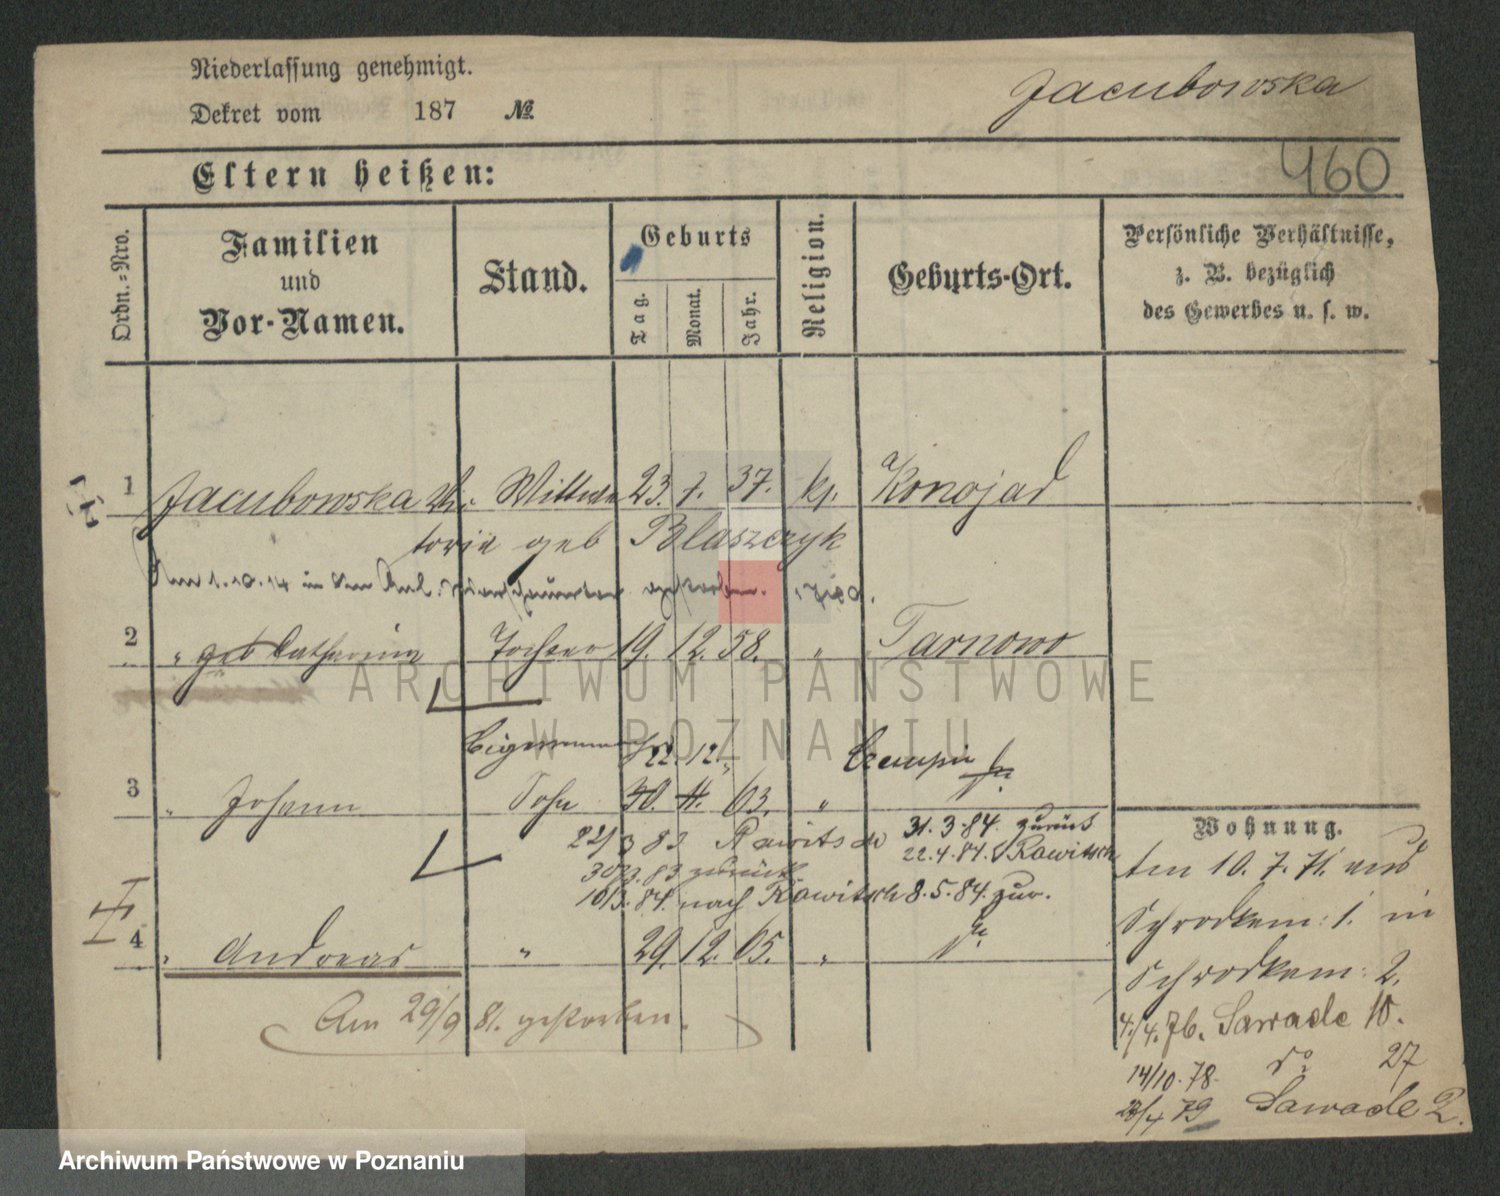 Niederlassung genehmigt.
Dekret vom 187 №
Jacubowska
460
Eltern heißen:
Ordn.-Nro.
Familien und Vor-Namen.
Stand.
Geburts
Tag.
Monat.
Jahr.
Religion.
Geburts-Ort.
Persönliche Verhältnisse, z. B. bezüglich des Gewerbes u. s. w.
1 Jacubowska Vic: Wittwe 23. 7. 37. kt. Konojad
torie geb Blaszczyk
Am 1.10.14 in gestorben.
2 " geb Catharina Tochter 19. 12. 58. " Tarnowo
ARCHIWUM PAŃSTWOWE
W POZNANIU
Cigarrenmacher 22. 12. Czempin
3 " Johann Sohn 30. 11. 63. "
22/3 83 Rawitsch 31.3.84. zurück
30/3.83 zurück 22.4.84. Rawitsch
10/3.84. nach Rawitsch 8.5.84. zur.
4 " Andreas " 29. 12. 65. " do
Am 29/9 81. gestorben.
Wohnung.
Am 10. 7. 71. aus
Schrodkam: 1. in
Schrodkam: 2.
4/4.76. Sawade 10.
14/10.78. do 27
28/4 79 Sawade 2.
Archiwum Państwowe w Poznaniu